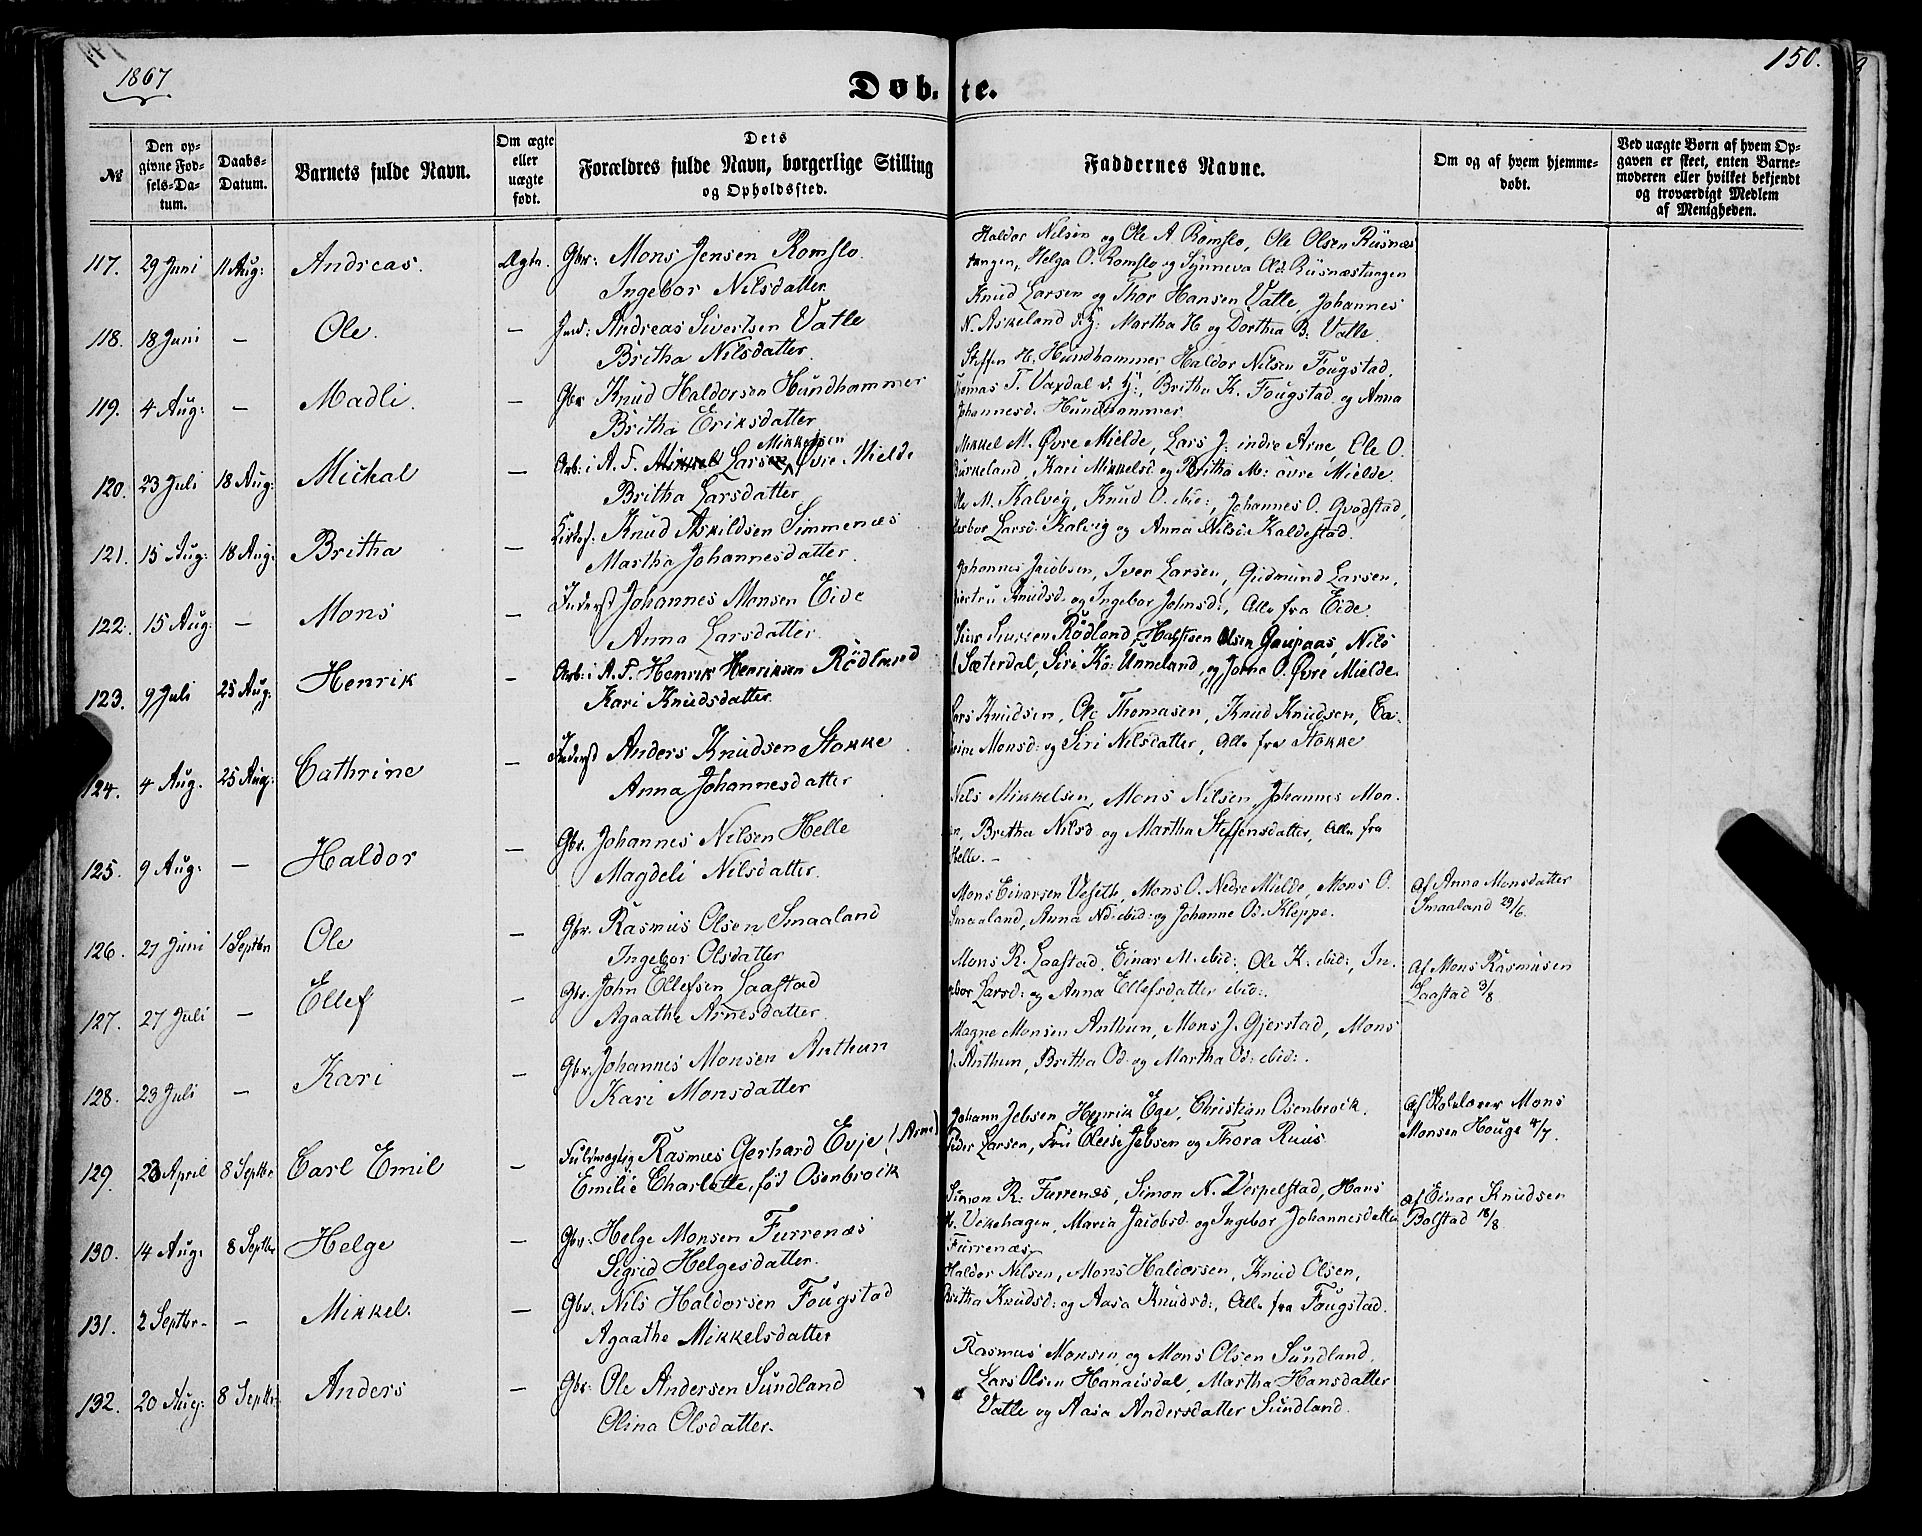 1867
Døb-te.
150.
№
Den op-
givne Fød-
sels-Da-
tum.
Daabs-
Datum.
Barnets fulde Navn.
Om ægte
eller
uægte
født.
Dets
Forældres fulde Navn, borgerlige Stilling
og Opholdssted.
Faddernes Navne.
Om og af hvem hjemme-
døbt.
Ved uægte Børn af hvem Op-
gaven er skeet, enten Barne-
moderen eller hvilket bekjendt
og troværdigt Medlem
af Menigheden.
117. 29 Juni 11 Aug: Andreas. Ægte. Gbr: Mons Jensen Romslo.
Ingebor Nilsdatter.
Haldor Nilsen og Ole A Romslo, Ole Olsen Riisnæs
tangen, Helga O. Romslo og Synneva Old. Riisnæstangen
118. 18 Juni — Ole. — Andreas Sivertsen Vatle
Britha Nilsdatter.
Knud Larsen og Thor Hansen Vatle, Johannes
N. Askeland Martha H og Dorthea B. Vatle.
119. 4 Aug: — Madli. — Gbr Knud Haldorsen Hundhammer
Britha Eriksdatter
Steffen H. Hundhammer, Haldor Nilsen Fougstad,
T. Vaxdal Britha K. Fougstad og Anna
Johannesd. Hundhammer
120. 23 Juli 18 Aug: Michal — Arb: i A. F. Mikkel Larsen Mikkelsen Øvre Mielde
Britha Larsdatter
Mikkel M. Øvre Mielde, Lars J: indre Arne, Ole O.
Birkeland, Kari Mikkelsd og Britha M: øvre Mielde.
121. 15 Aug: 18 Aug: Britha — Knud Askildsen Simmenæs
Martha Johannesdatter
Ole M. Kalvig, Knud O. ibid:, Johannes O. Qvadstad,
Larsd: Kalvig og Anna Nilsd: Kaldestad.
122. 15 Aug: — Mons — Inderst Johannes Monsen Eide
Anna Larsdatter.
Johannes Jacobsen, Iver Larsen, Gudmund Larsen,
Knudsd: og Ingebor Johnsd:, Alle fra Eide.
123. 9 Juli 25 Aug: Henrik — Arb: i A. F. Henrik Henriksen Rödland
Kari Knudsdatter.
Rödland, Halsten Olsen Gaupaas, Nils
Sæterdal, Siri Unneland, og Jorna O. Øvre Mielde.
124. 4 Aug. 25 Aug: Cathrine — Inderst Anders Knudsen Stokke
Anna Johannesdatter
Lars Knudsen, Ole Thomasen, Knud Knudsen, Ca-
trine Monsd: og Siri Nilsdatter, Alle fra Stokke
125. 9 Aug: — Haldor — Gbr. Johannes Nilsen Helle
Magdeli Nilsdatter.
Nels Mikkelsen, Mons Nilsen, Johannes Mon-
en, Britha Nilsd og Martha Steffensdatter, Alle fra
Helle. —
126. 27 Juni 1 Septbr Ole — Gbr. Rasmus Olsen Smaaland
Ingebor Olsdatter
Mons Einarsen Veseth, Mons O. Nedre Mielde, Mons O.
Smaaland, Anna Nd: ibid: og Johanne Od: Kleppe.
Af Anna Monsdatter
Smaaland 29/6.
127. 27 Juli — Ellef — Gbr. John Ellefsen Laastad
Agaathe Arnesdatter.
Mons R. Laastad, Einar M. ibid:, Ole K. ibid:, In-
gebor Larsd: og Anna Ellefsdatter ibid:.
Af Mons Rasmusen
Laastad 3/8.
128. 23 Juli — Kari — Gbr. Johannes Monsen Anthun
Kari Monsdatter
Magne Monsen Anthun, Mons J. Gjerstad, Mons
J. Anthun, Britha Od: og Martha Od: ibid:.
129. 23 April 8 Septbr Carl Emil — Fuldmægtig Rasmus Gerhard Evje (Arne)
Emilie Charlotte, fød Osenbroik
Johann Jebsen, Henrik Ege, Christian Osenbroik.
Peder Larsen, Fru Jebsen og Thora Ruus
Af Skolelærer Mons
Monsen Houge 4/7.
130. 14 Aug: 8 Septbr Helge — Gbr: Helge Monsen Furrenæs
Sigrid Helgesdatter.
Simon R. Furrenæs, Simon N. Vespelstad, Hans
Vikehagen, Maria Jacobsd: og Ingebor Johannesdatter
Furrenæs
Af Einar Knudsen
Bolstad 18/8.
131. 2 Septbr. — Mikkel. — Gbr. Nils Haldorsen Fougstad
Agaathe Mikkelsdatter
Haldor Nilsen, Mons Haldorsen, Knud Olsen,
Britha Knudsd: og Aasa Knudsd:, Alle fra Fougstad.
132. 20 Aug: 8 Septbr. Anders — Gbr: Ole Andersen Sundland
Olina Olsdatter.
Rasmus Monsen og Mons Olsen Sundland,
Lars Olsen Hanaisdal, Martha Hansdatter
Vatle og Aasa Andersdatter Sundland.